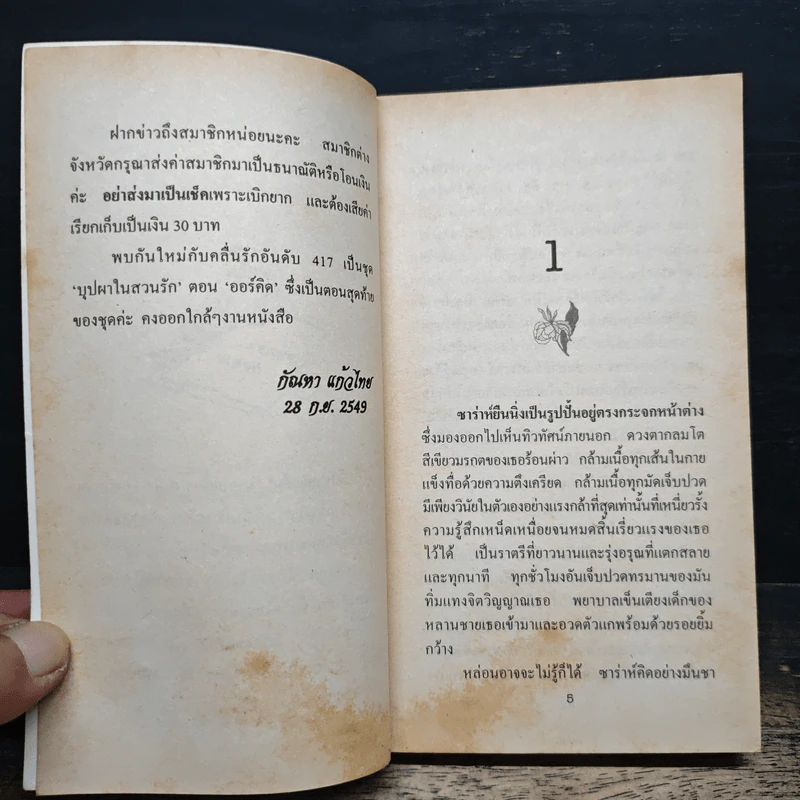 ฝากข่าวถึงสมาชิกหน่อยนะคะ สมาชิกต่าง
จังหวัดกรุณาส่งค่าสมาชิกมาเป็นธนาณัติหรือโอนเงิน
ค่ะ อย่าส่งมาเป็นเช็คเพราะเบิกยาก และต้องเสียค่า
เรียกเก็บเป็นเงิน 30 บาท
พบกันใหม่กับคลื่นรักอันดับ 417 เป็นชุด
‘บุปผาในสวนรัก’ ตอน ‘ออร์คิด’ ซึ่งเป็นตอนสุดท้าย
ของชุดค่ะ คงออกใกล้ๆงานหนังสือ
กัณหา แก้วไทย
28 ก.ย. 2549
1
ซาร่าห์ยืนนิ่งเป็นรูปปั้นอยู่ตรงกระจกหน้าต่าง
ซึ่งมองออกไปเห็นทิวทัศน์ภายนอก ดวงตากลมโต
สีเขียวมรกตของเธอร้อนผ่าว กล้ามเนื้อทุกเส้นในกาย
แข็งทื่อด้วยความตึงเครียด กล้ามเนื้อทุกมัดเจ็บปวด
มีเพียงวินัยในตัวเองอย่างแรงกล้าที่สุดเท่านั้นที่เหนี่ยวรั้ง
ความรู้สึกเหน็ดเหนื่อยจนหมดสิ้นเรี่ยวแรงของเธอ
ไว้ได้ เป็นราตรีที่ยาวนานและรุ่งอรุณที่แตกสลาย
และทุกนาที ทุกชั่วโมงอันเจ็บปวดทรมานของมัน
ทิ่มแทงจิตวิญญาณเธอ พยาบาลเข็นเตียงเด็กของ
หลานชายเธอเข้ามาและอวดตัวแกพร้อมด้วยรอยยิ้ม
กว้าง
หล่อนอาจจะไม่รู้ก็ได้ ซาร่าห์คิดอย่างมึนชา
5